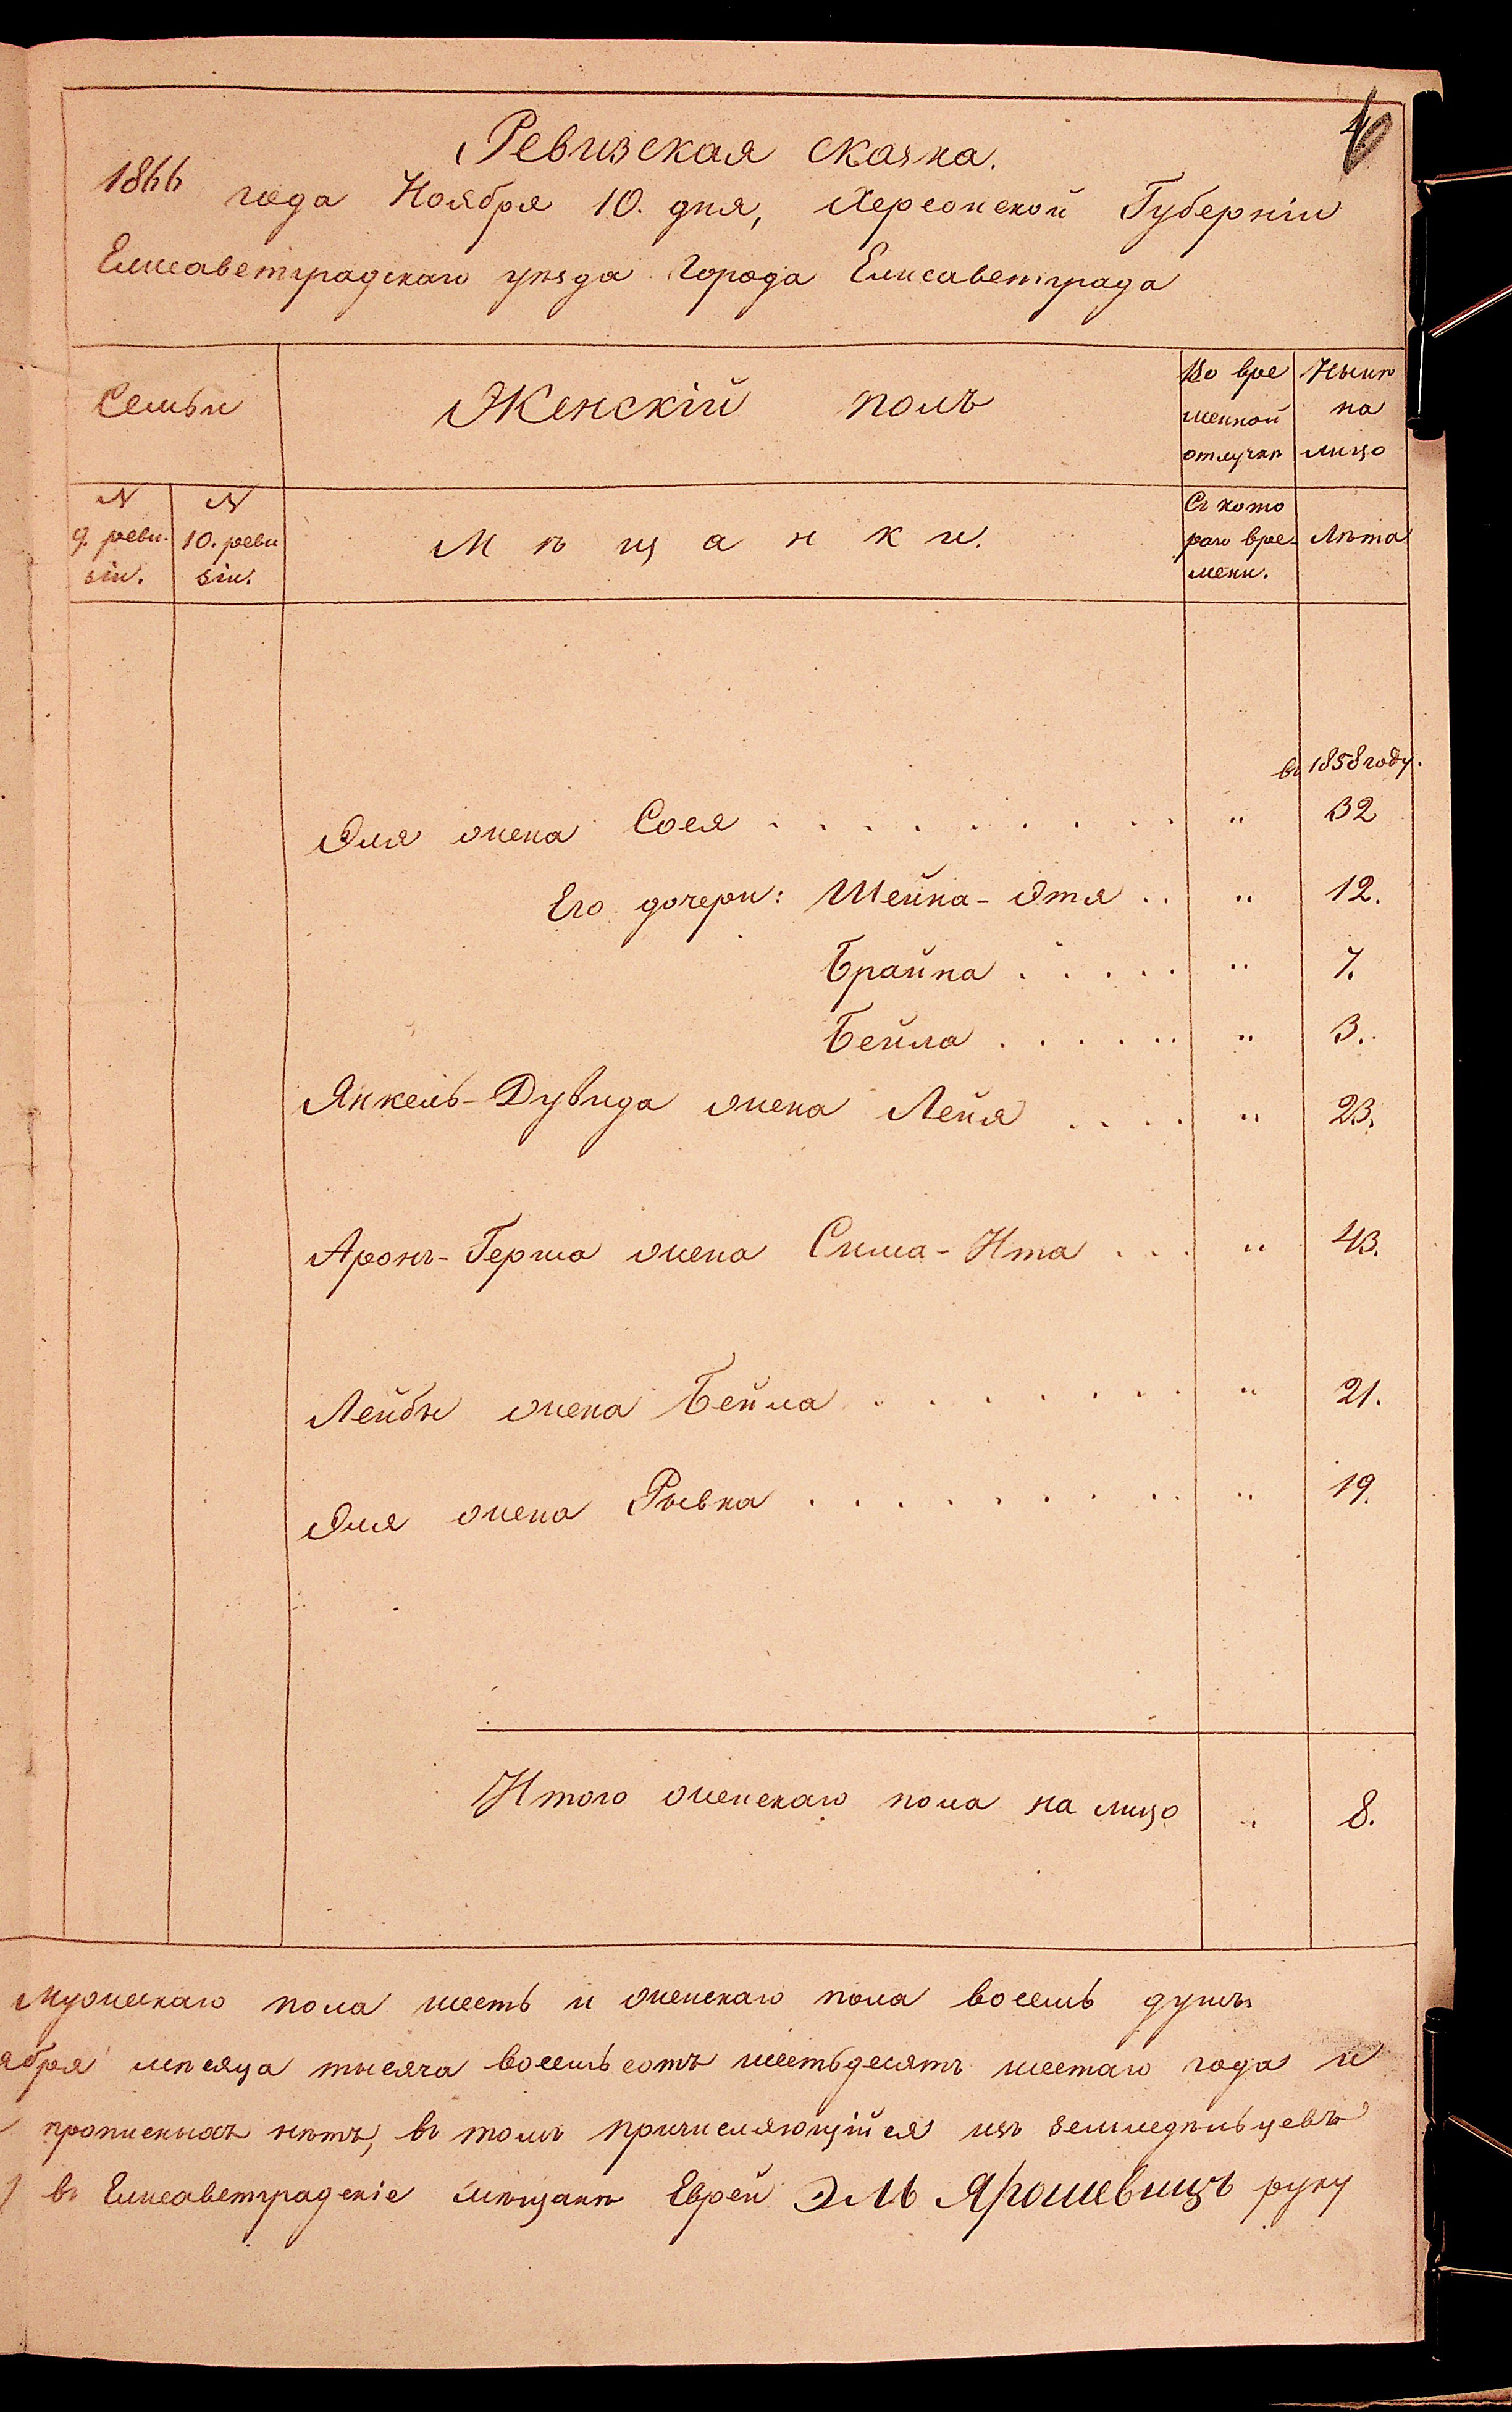 Ревизская сказка.
1866 года Ноября 10. дня, Херсонской Губерніи
Елисаветградскаго уѣзда Города Елисаветграда
Семьи
Женскій полъ
Во вре
менной
отлучкѣ
Нынѣ
на
лицо
N
9. реви-
зіи.
N
10. реви
зіи.
Мѣщанки.
Съ кото
раго вре-
мени.
Лѣта
въ 1858 году.
Эля жена Сося . . . . . . . . . . " 32
Его дочери: Шейна-Этя . . " 12.
Брайна . . . . . " 7.
Бейла . . . . . . " 3.
Янкель-Дувида жена Лея . . . . " 23.
Аронъ-Герша жена Сима-Ита . . . " 43.
Лейбы жена Бейла . . . . . . . " 21.
Эля жена Рывка . . . . . . . . . " 19.
Итого женскаго пола на лицо " 8.
мужескаго пола шесть и женскаго пола восемь душъ
ября мѣсяца тысяча восемьсотъ шестьдесятъ шестаго года и
прописныхъ нѣтъ, въ томъ причисляющійся изъ земледѣльцевъ
въ Елисаветградскіе мѣщане Еврей Эль Ярошевицъ руку